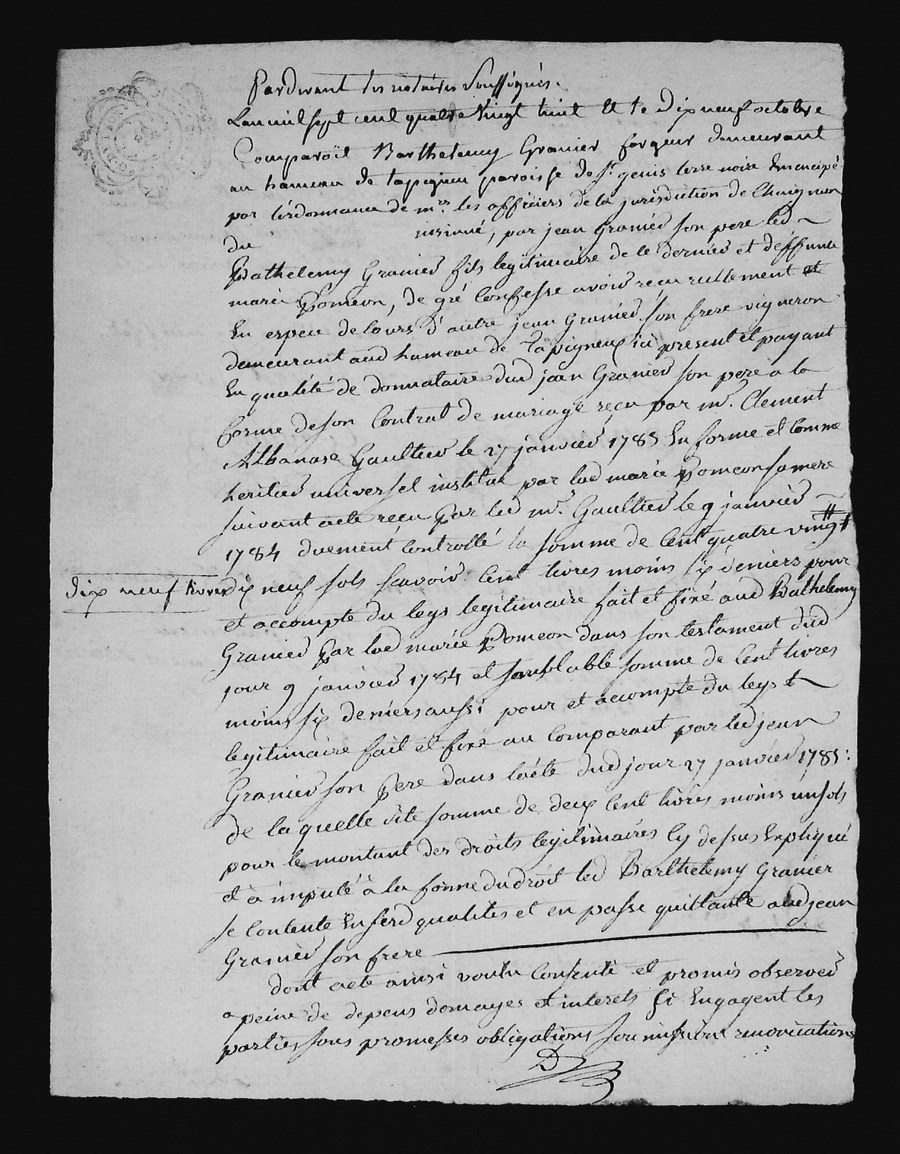 Pardevant les notaires soussignés.
L'an mil sept cent quatre vingt huit et le dix neuf octobre
Comparoit Barthelemy Granier forgeur demeurant
au hameau de tapigneu paroisse de st genis terre noire Emancipé
par l'ordonnance de mrs les officiers de la jurisdiction de
du insinué, par jean Granier son pere led
Bathelemy Granier fils legitimaire de ce dernier et deffunte
marie Pomeon, de gré Confesse avoir reçu reellement et
En espece de Cours d'autre jean Granier son frere vigneron
demeurant aud hameau de Tapigneux ici present et payant
En qualité de donnataire dud jean Granier son pere à la
forme de son Contrat de mariage reçu par me. Clement
Athanase Gaultier le 27 janvier 1785 En forme et Comme
heritier universel institué par lad marie Pomeon sa mere
suivant acte recu Par led me. Gaultier le 9 janvier
1784 duement Controllé la somme de Cent quatre vingt
dix neuf livres
dix neuf sols scavoir Cent livres moins six deniers pour
et accompte du legs legitimaire fait et fixé aud Bathelemy
Granier Par lad marie Pomeon dans son testament dud
jour 9 janvier 1784 et semblable somme de Cent livres
moins six deniers aussi pour et acompte du legs
legitimaire fait et fixé au Comparant par led jean
Granier son Pere dans l'acte dud jour 27 janvier 1785:
de laquelle dite somme de deux Cent livres moins un sols
pour le montant des droits legitimaires Cy dessus Expliqué
et à imputé à la forme du droit led Barthelemy Granier
se Contente En sesd qualites et en passe quittance aud jean
Granier son frere
dont acte ainsi voulu Consenti et promis observer
a peine de depens domages et interets Si Engagent les
parties sous promesses obligations soumissions renonciations